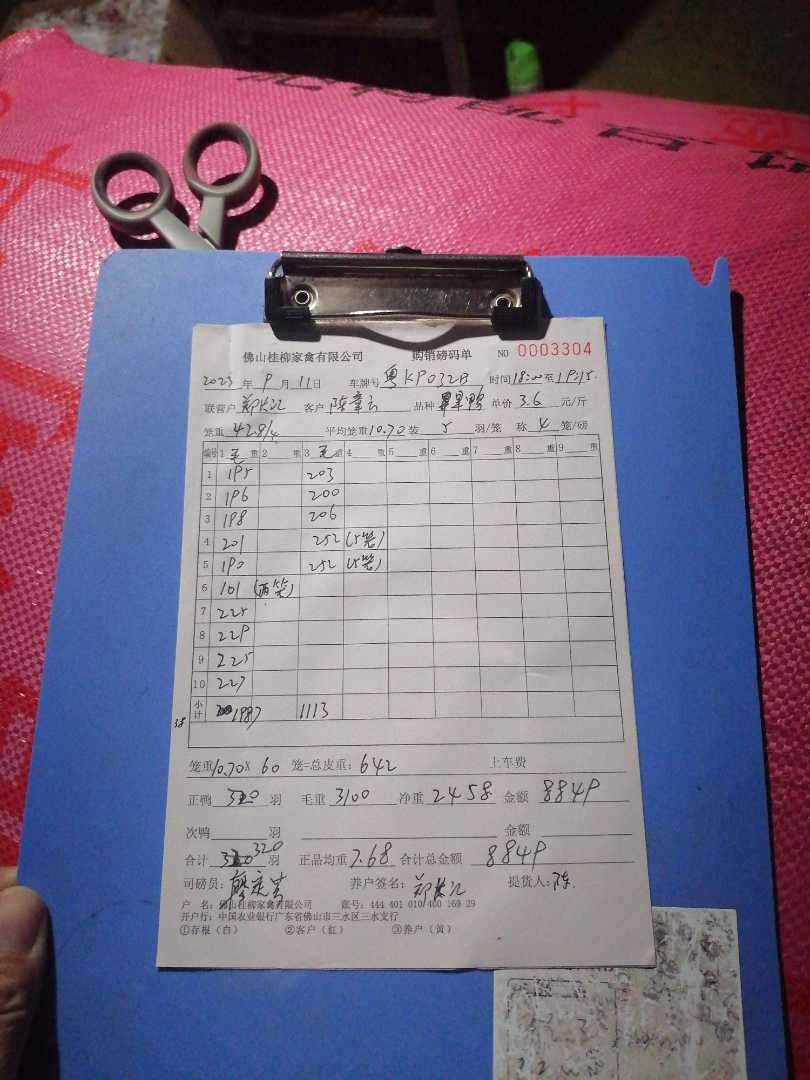 佛山桂柳家禽有限公司 购销磅码单 NO 0003304
2023年 9月 11日 车牌号 粤KP032B 时间 18:00至19:15.
联营户 郑 客户 陈章云 品种 鸭 单价 3.6 元/斤
笼重 42.8/4 平均笼重 10.70 装 5 羽/笼 称 4 笼/磅
编号 1 毛 重 2 重 3 毛 重 4 重 5 重 6 重 7 重 8 重 9 重
1 195 203
2 196 200
3 198 206
4 201 252 (5笼)
5 190 252 (5笼)
6 101 (两笼)
7 225
8 229
9 225
10 227
小计 1987 1113
笼重 10.70 X 60 笼=总皮重: 642 上车费
正鸭 320 羽 毛重 3100 净重 2458 金额 8849
次鸭 羽 金额
合计 320 羽 正品均重 7.68 合计总金额 8849
司磅员: 养户签名: 郑 提货人: 陈.
户 名: 佛山桂柳家禽有限公司 账号: 444 401 010 400 169 29
开户行: 中国农业银行广东省佛山市三水区三水支行
①存根(白) ②客户(红) ③养户(黄)